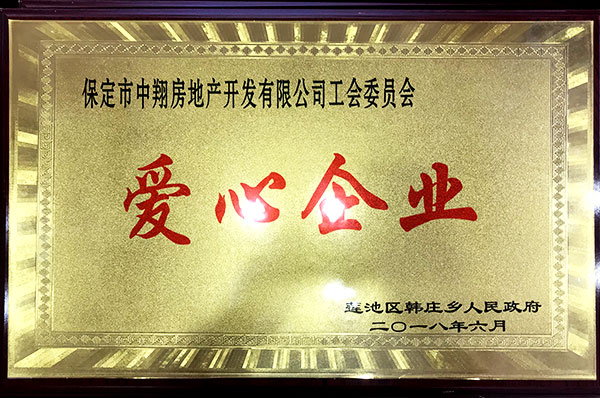 保定市中翔房地产开发有限公司工会委员会
爱心企业
莲池区韩庄乡人民政府
二〇一八年六月